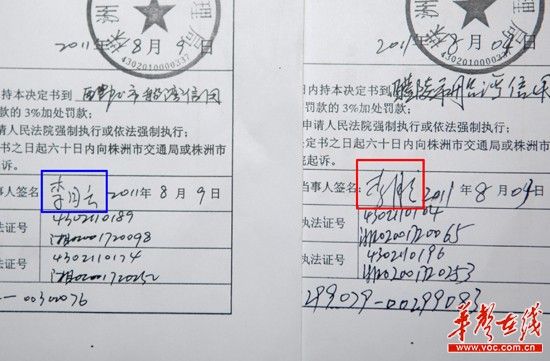 株洲
理局
4302010000337
2011年8月9日
内持本决定书到
罚款的3%加处罚款。
请人民法院强制执行或依法强制执行;
书之日起六十日内向株洲市交通局或株洲市
起诉。
当事人签名
2011年8月9日
4302110189
执法证号
湘02001720098
执法证号
4302110174
00300076
株洲
4302010000337
2011年8月04日
日内持本决定书到
罚款的3%加处罚款。
申请人民法院强制执行或依法强制执行;
定书之日起六十日内向株洲市交通局或株洲
完起诉。
当事人签名:
2011年8月04日
4302110164
执法证号
湘02001720065
4302110196
执法证号
湘02001720253
299029-00299083
华声在线
www.voc.com.cn